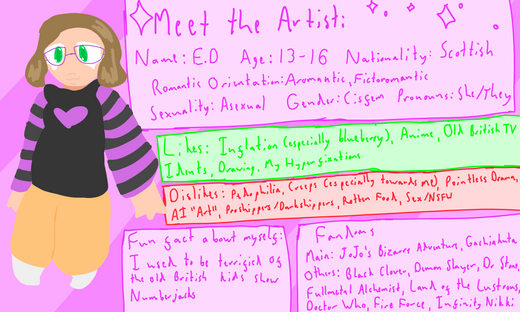 Meet the Artist:
Name: E.D Age: 13-16 Nationality: Scottish
Romantic Orientation: Aromantic, Fictoromantic
Sexuality: Asexual Gender: Cisfem Pronouns: She/They
Likes: Inflation (especially blueberry), Anime, Old British TV
Idents, Drawing, My Hyperfixations
Dislikes: Pedophilia, Creeps (especially towards me), Pointless Drama,
AI "Art", Proshippers/Darkshippers, Rotten Food, Sex/NSFW
Fun fact about myself:
I used to be terrified of
the old British kids show
Numberjacks
Fandoms
Main: JoJo's Bizarre Adventure, Gachiakuta
Others: Black Clover, Demon Slayer, Dr Stone,
Fullmetal Alchemist, Land of the Lustrous,
Doctor Who, Fire Force, Infinity Nikki